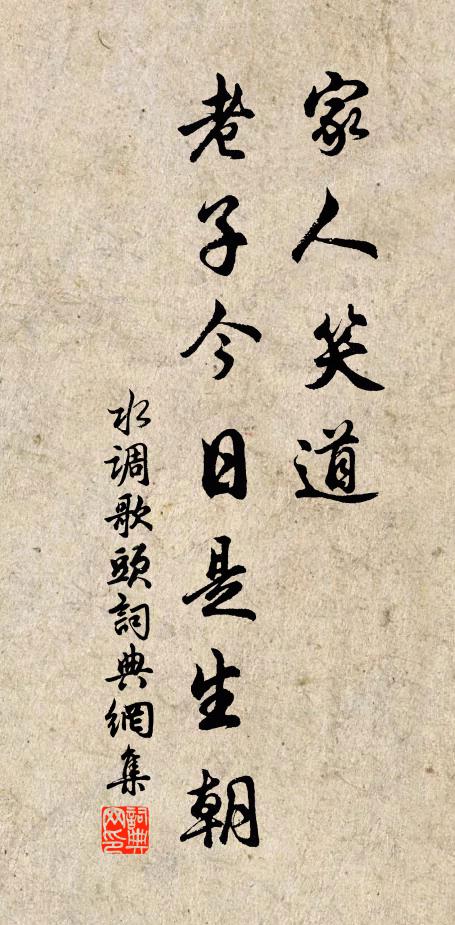 家人笑道
老子今日是生朝
水调歌頭詞典網集
詞典
网印